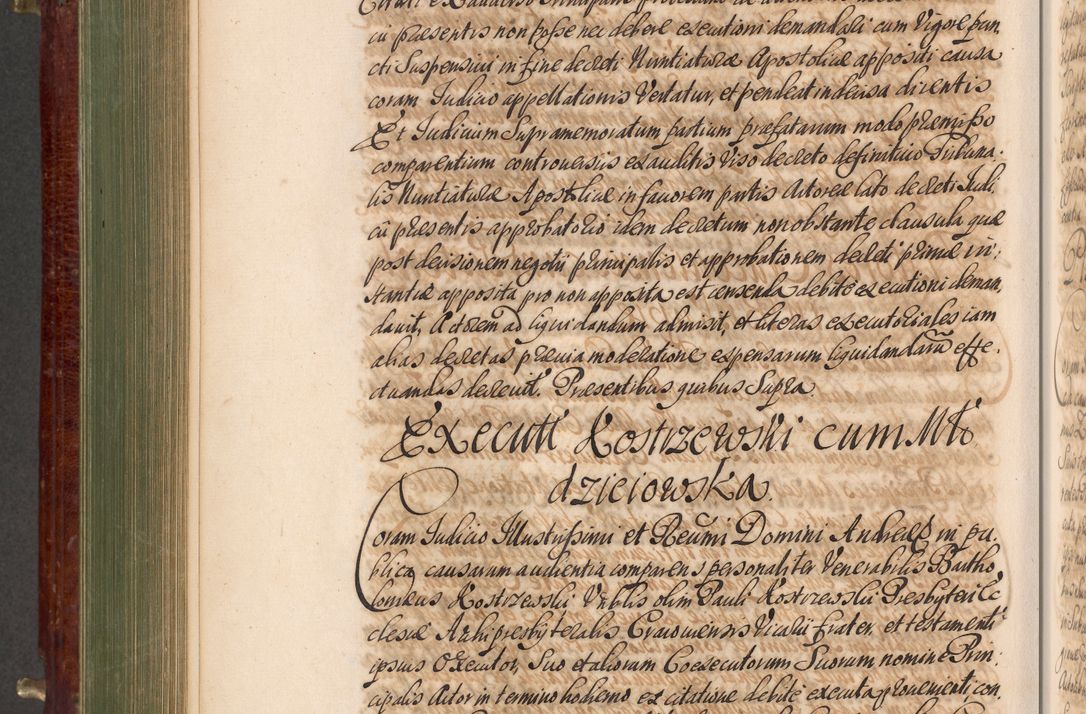 cii praesentis non posse nec debere executioni demandari cum Vigore pun
cti Suspensivi in fine decreti Nuntiaturae Apostolicae appositi causa
coram Iudicio appellationis Vertatur, et pendeat indecisa dicentis
Et Iudicium Supramemoratum partium praefatarum modo praemisso
comparentium controversiis exauditis Viso decreto definitivo Tribuna-
lis Nuntiaturae Apostolicae in favorem partis Actoreae lato decreti Iudi-
cii praesentis approbatorio idem decretum non obstante clausula quae
post decisionem negotii principalis et approbationem decreti primae in-
stantiae apposita pro non apposita est censenda debitae executioni deman
davit, Actorem ad liquidandum admisit, et literas executoriales iam
alias decretas praevia moderatione expensarum liquidandarũ effe-
ctuandas decrevit. Praesentibus quibus Supra.
Executt Kostrzewski cum Mło
dzieiowska.
Coram Iudicio Illustrissimi et Reũmi Domini Andreae in pu-
blica causarum audientia comparens personaliter Venerabilis Bartho
lomaeus Kostrzewski Vnblis olim Pauli Kostrzewski Presbyteri Ec
clesiae Archipresbyteralis Cracoviensis Vicarii frater, et testamenti
ipsius Executor, Suo et aliorum Coexecutorum Suorum nomine Prin-
cipalis Actor in termino hodierno ex citatione debite executa provenienti con-